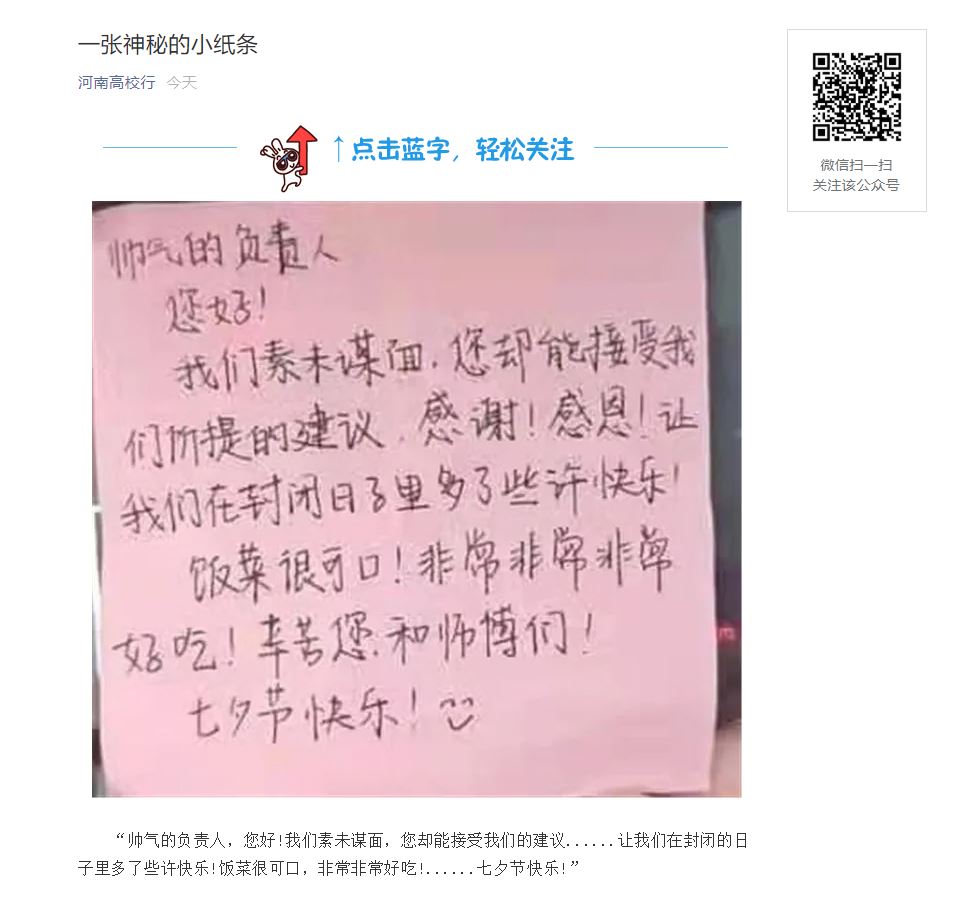 一张神秘的小纸条
河南高校行 今天
微信扫一扫
关注该公众号
↑点击蓝字，轻松关注
帅气的负责人
您好！
我们素未谋面.您却能接受我
们所提的建议.感谢！感恩！让
我们在封闭日子里多了些许快乐！
饭菜很可口！非常非常非常
好吃！辛苦您.和师博们！
七夕节快乐！
“帅气的负责人，您好!我们素未谋面，您却能接受我们的建议......让我们在封闭的日
子里多了些许快乐!饭菜很可口，非常非常好吃!......七夕节快乐!”